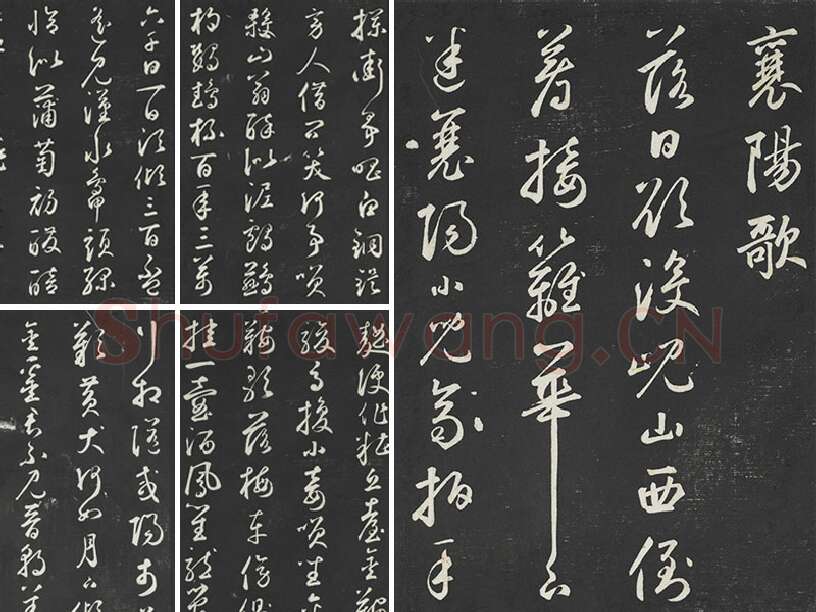 襄陽歌
落日欲没峴山西倒
著接籬華下
迷襄陽小兒齊拍手
攔街爭唱白銅鍉
旁人借問笑何事笑
殺山翁醉似泥鸕鶿
杓鸚鵡杯百年三萬
六千日一日須傾三百盃
遙見漢水鴨頭綠
恰似蒲萄初醱醅
麴便作糟丘臺金
駿馬換小妾笑坐金
鞍歌落梅車傍側
挂一壺酒鳳笙龍管
行相隨咸陽市
歎黃犬何如月下傾
金罍君不見晉朝羊
Shufawang.CN